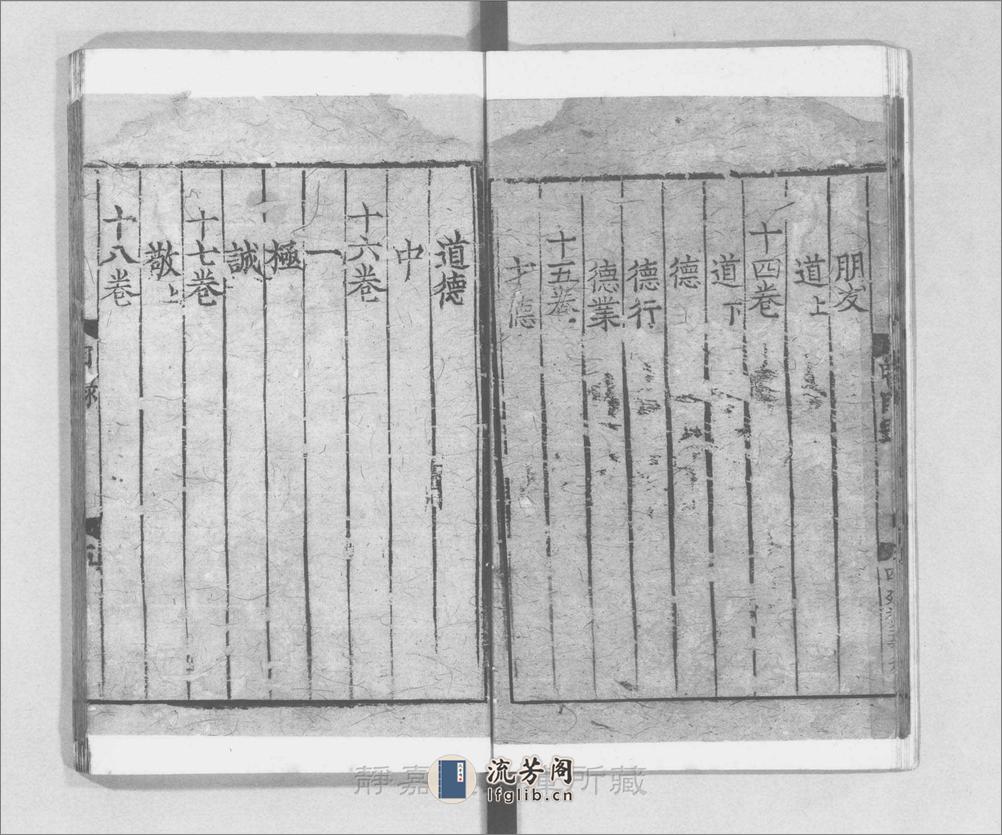 朋友
道上
十四卷
道下
德
德行
德業
十五卷
才德
道德
中
十六卷
一
極
誠
十七卷
敬上
十八卷
流芳阁
lfglib.cn
所藏